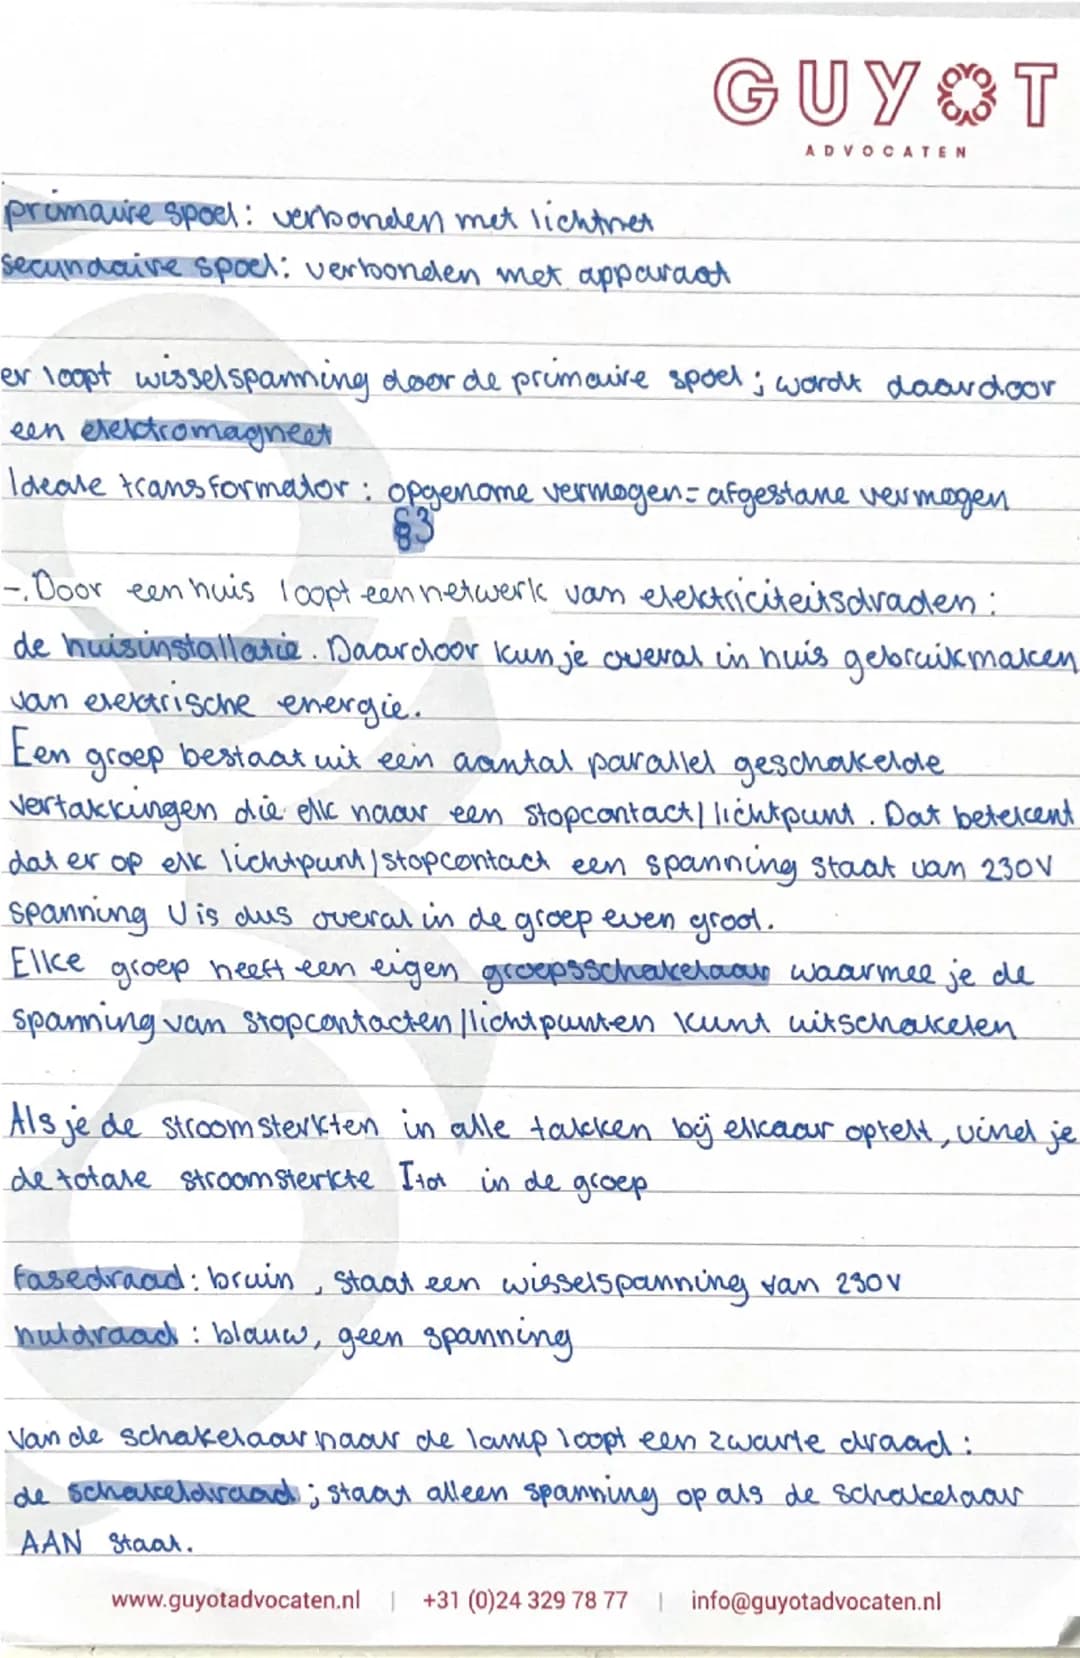 GUYOT
ADVOCATEN
primaire spoel: verbonden met lichtnet
secundaire spoel: verbonden met apparaat
er loopt wisselspanning door de primaire spoel; wordt daardoor
een elektromagneet
Ideale transformator: opgenome vermogen = afgestane vermogen
§3
-. Door een huis loopt een netwerk van elektriciteitsdraden:
de huisinstallatie. Daardoor kun je overal in huis gebruikmaken
van elektrische energie.
Een groep bestaat uit een aantal parallel geschakelde
vertakkingen die elk naar een stopcontact/lichtpunt. Dat betekent
dat er op elk lichtpunt/stopcontact een spanning staat van 230V
spanning U is dus overal in de groep even groot.
Elke groep heeft een eigen groepsschakelaar waarmee je de
spanning van stopcontacten/lichtpunten kunt uitschakelen
Als je de stroomsterkten in alle takken bij elkaar optelt, vind je
de totale stroomsterkte Itot in de groep
fasedraad: bruin, staat een wisselspanning van 230V
nuldraad: blauw, geen spanning
Van de schakelaar naar de lamp loopt een zwarte draad:
de schakeldraad; staat alleen spanning op als de schakelaar
AAN staat.
www.guyotadvocaten.nl | +31 (0)24 329 78 77 | info@guyotadvocaten.nl